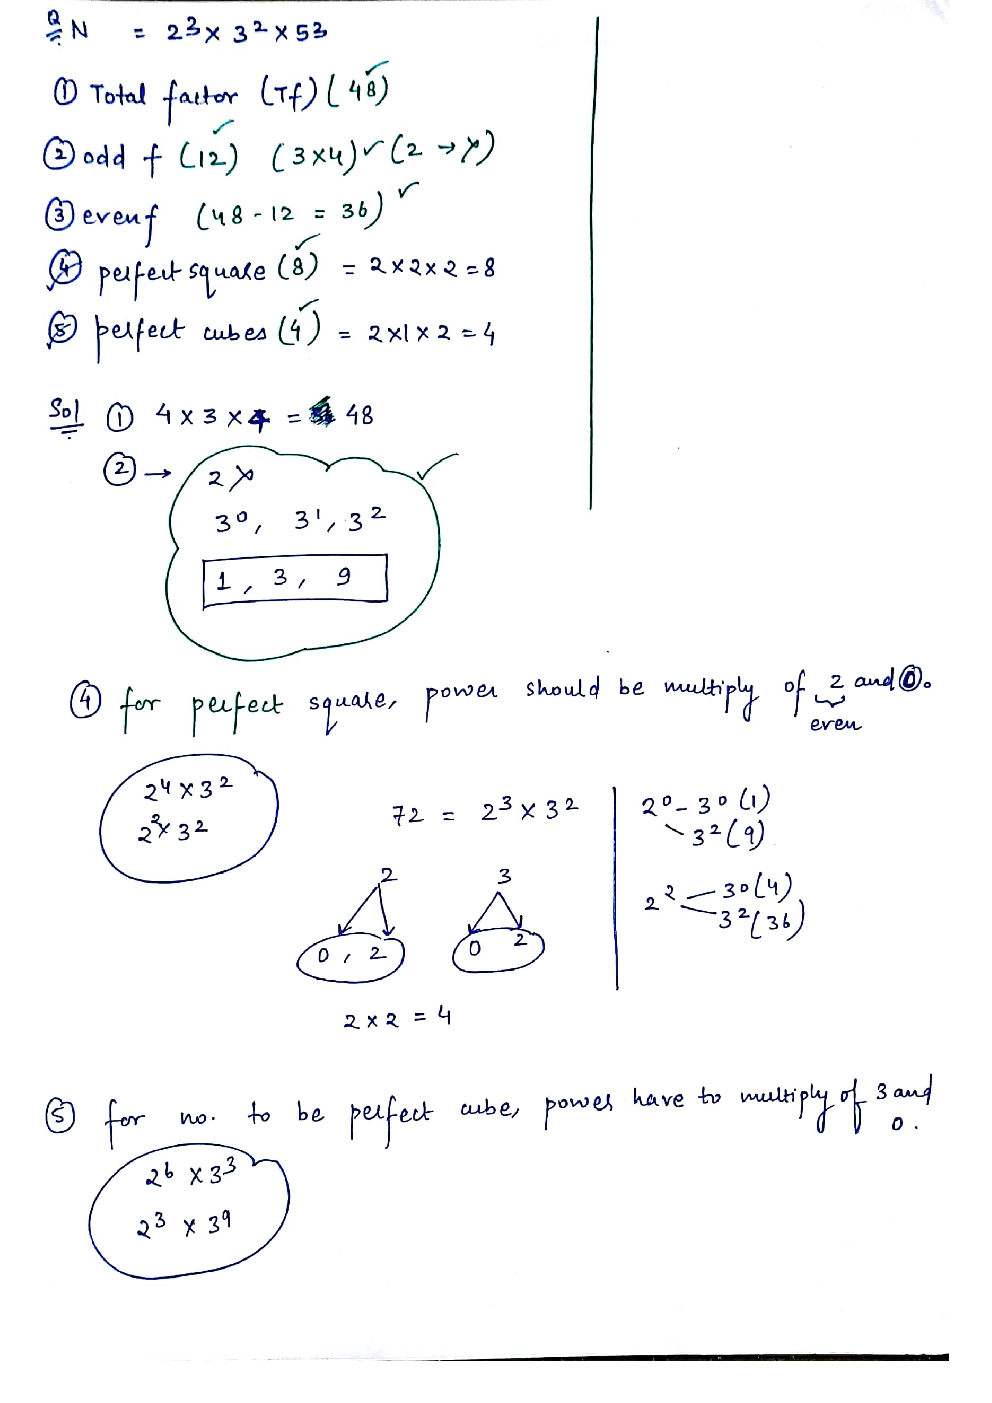 Q N = 2³ × 3² × 5³
① Total factor (Tf) (48) ✓
② odd f (12) ✓ (3×4) ✓ (2 → ×)
③ even f (48 - 12 = 36) ✓
④ perfect square (8) ✓ = 2×2×2 = 8
⑤ perfect cubes (4) ✓ = 2×1×2 = 4
Sol ① 4 × 3 × 4 = 48
② → 2 × ✓
3⁰, 3¹, 3²
1, 3, 9
④ for perfect square, power should be multiply of 2 and 0.
even
2⁴ × 3²
2² × 3²
72 = 2³ × 3²
2 3
0, 2 0 2
2 × 2 = 4
2⁰ - 3⁰ (1)
3² (9)
2² - 3⁰ (4)
3² (36)
⑤ for no. to be perfect cube, power have to multiply of 3 and
0.
2⁶ × 3³
2³ × 3⁹